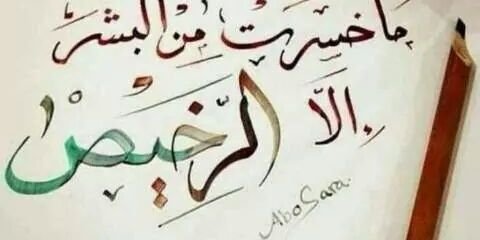 ما خسرت من البشر
إلّا الرّخيص
Abo Sara